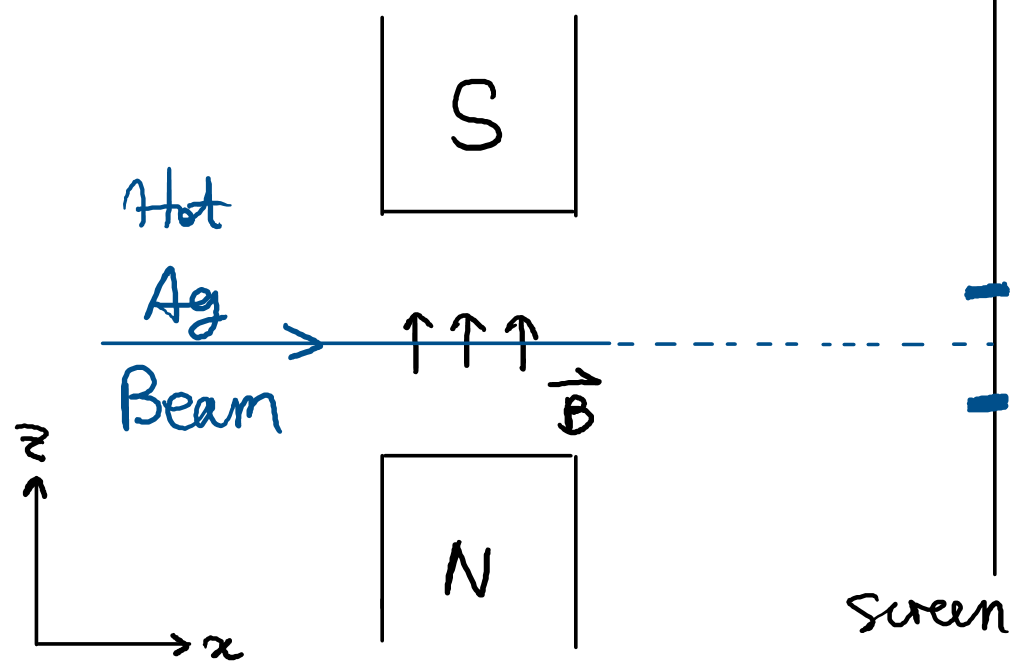 S
Hot
Ag
Beam
B
z
N
x
Screen